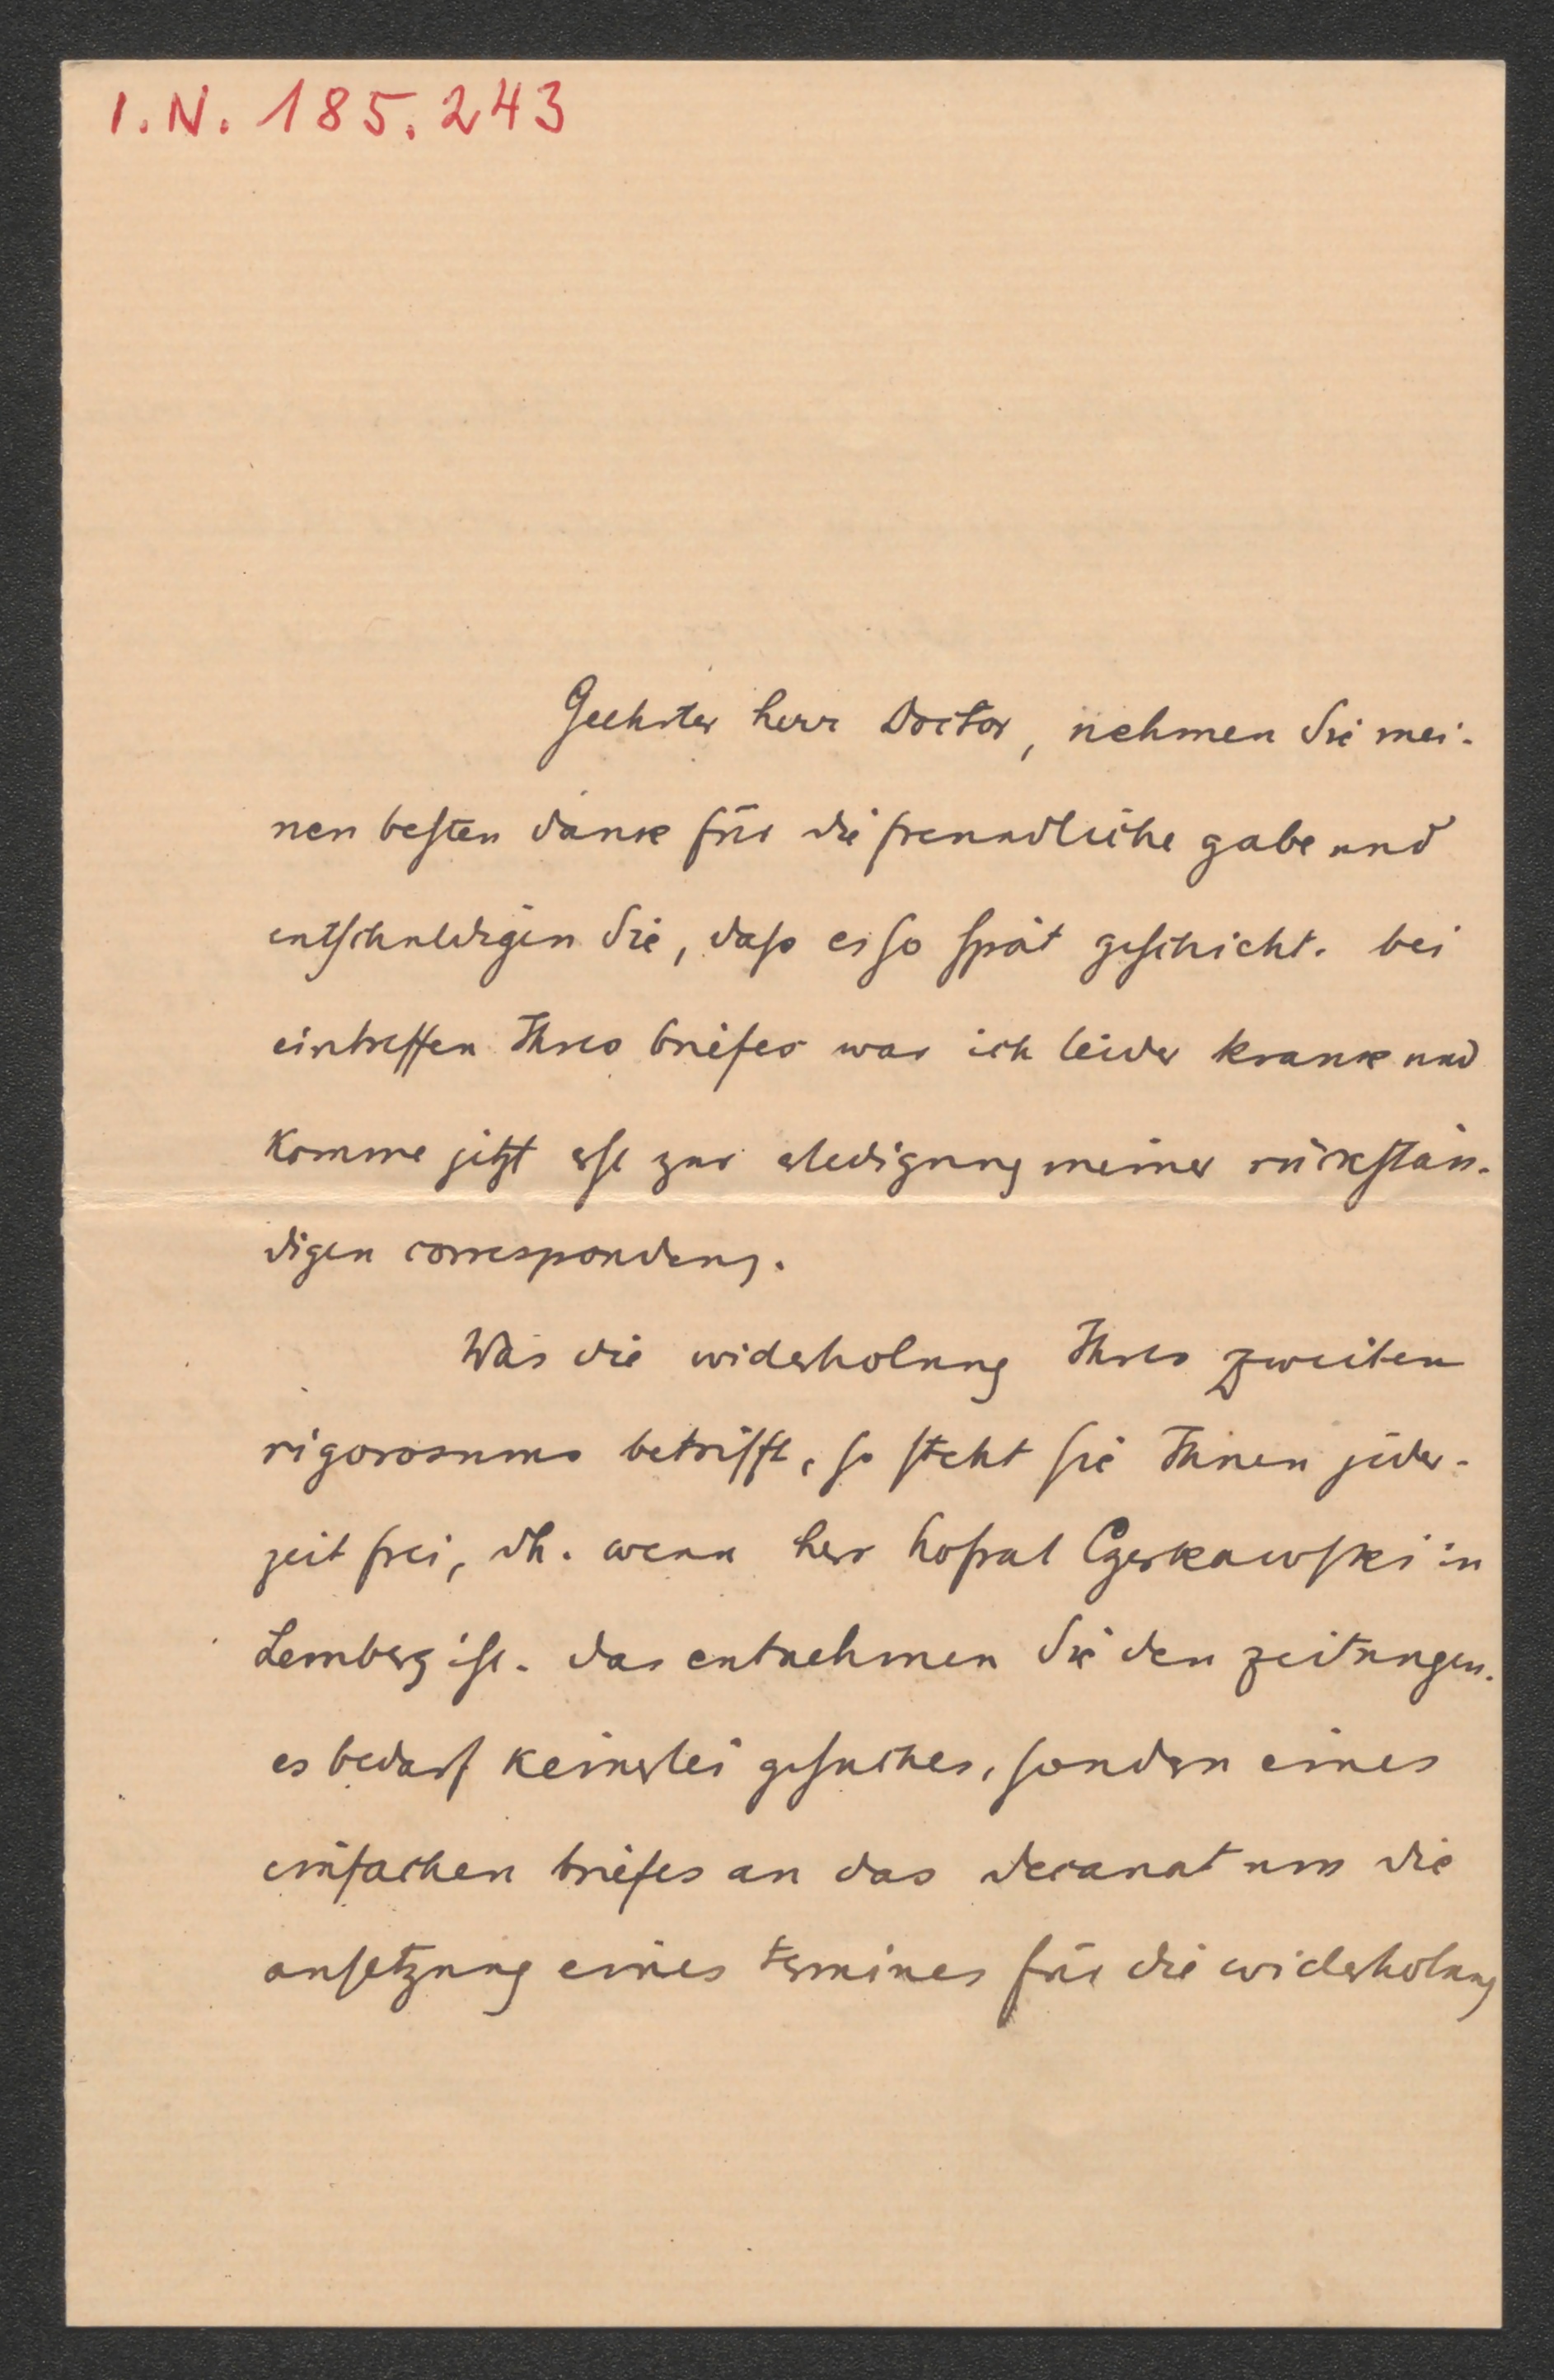 I. N. 185.243
Geehrter herr Doctor, nehmen Sie mei-
nen besten dank für die freundliche gabe und
entschuldigen Sie, dass es so spät geschieht. bei
eintreffen Ihres briefes war ich leider krank und
komme jetzt erst zur erledigung meiner rückstän-
digen correspondenz.
Was die widerholung Ihres zweiten
rigorosums betrifft, so steht sie Ihnen jeder-
zeit frei, dh. wenn herr hofrat Czerkawski in
Lemberg ist. das entnehmen Sie den zeitungen.
es bedarf keinerlei gesuches, sondern eines
einfachen briefes an das decanat um die
ansetzung eines termines für die widerholung